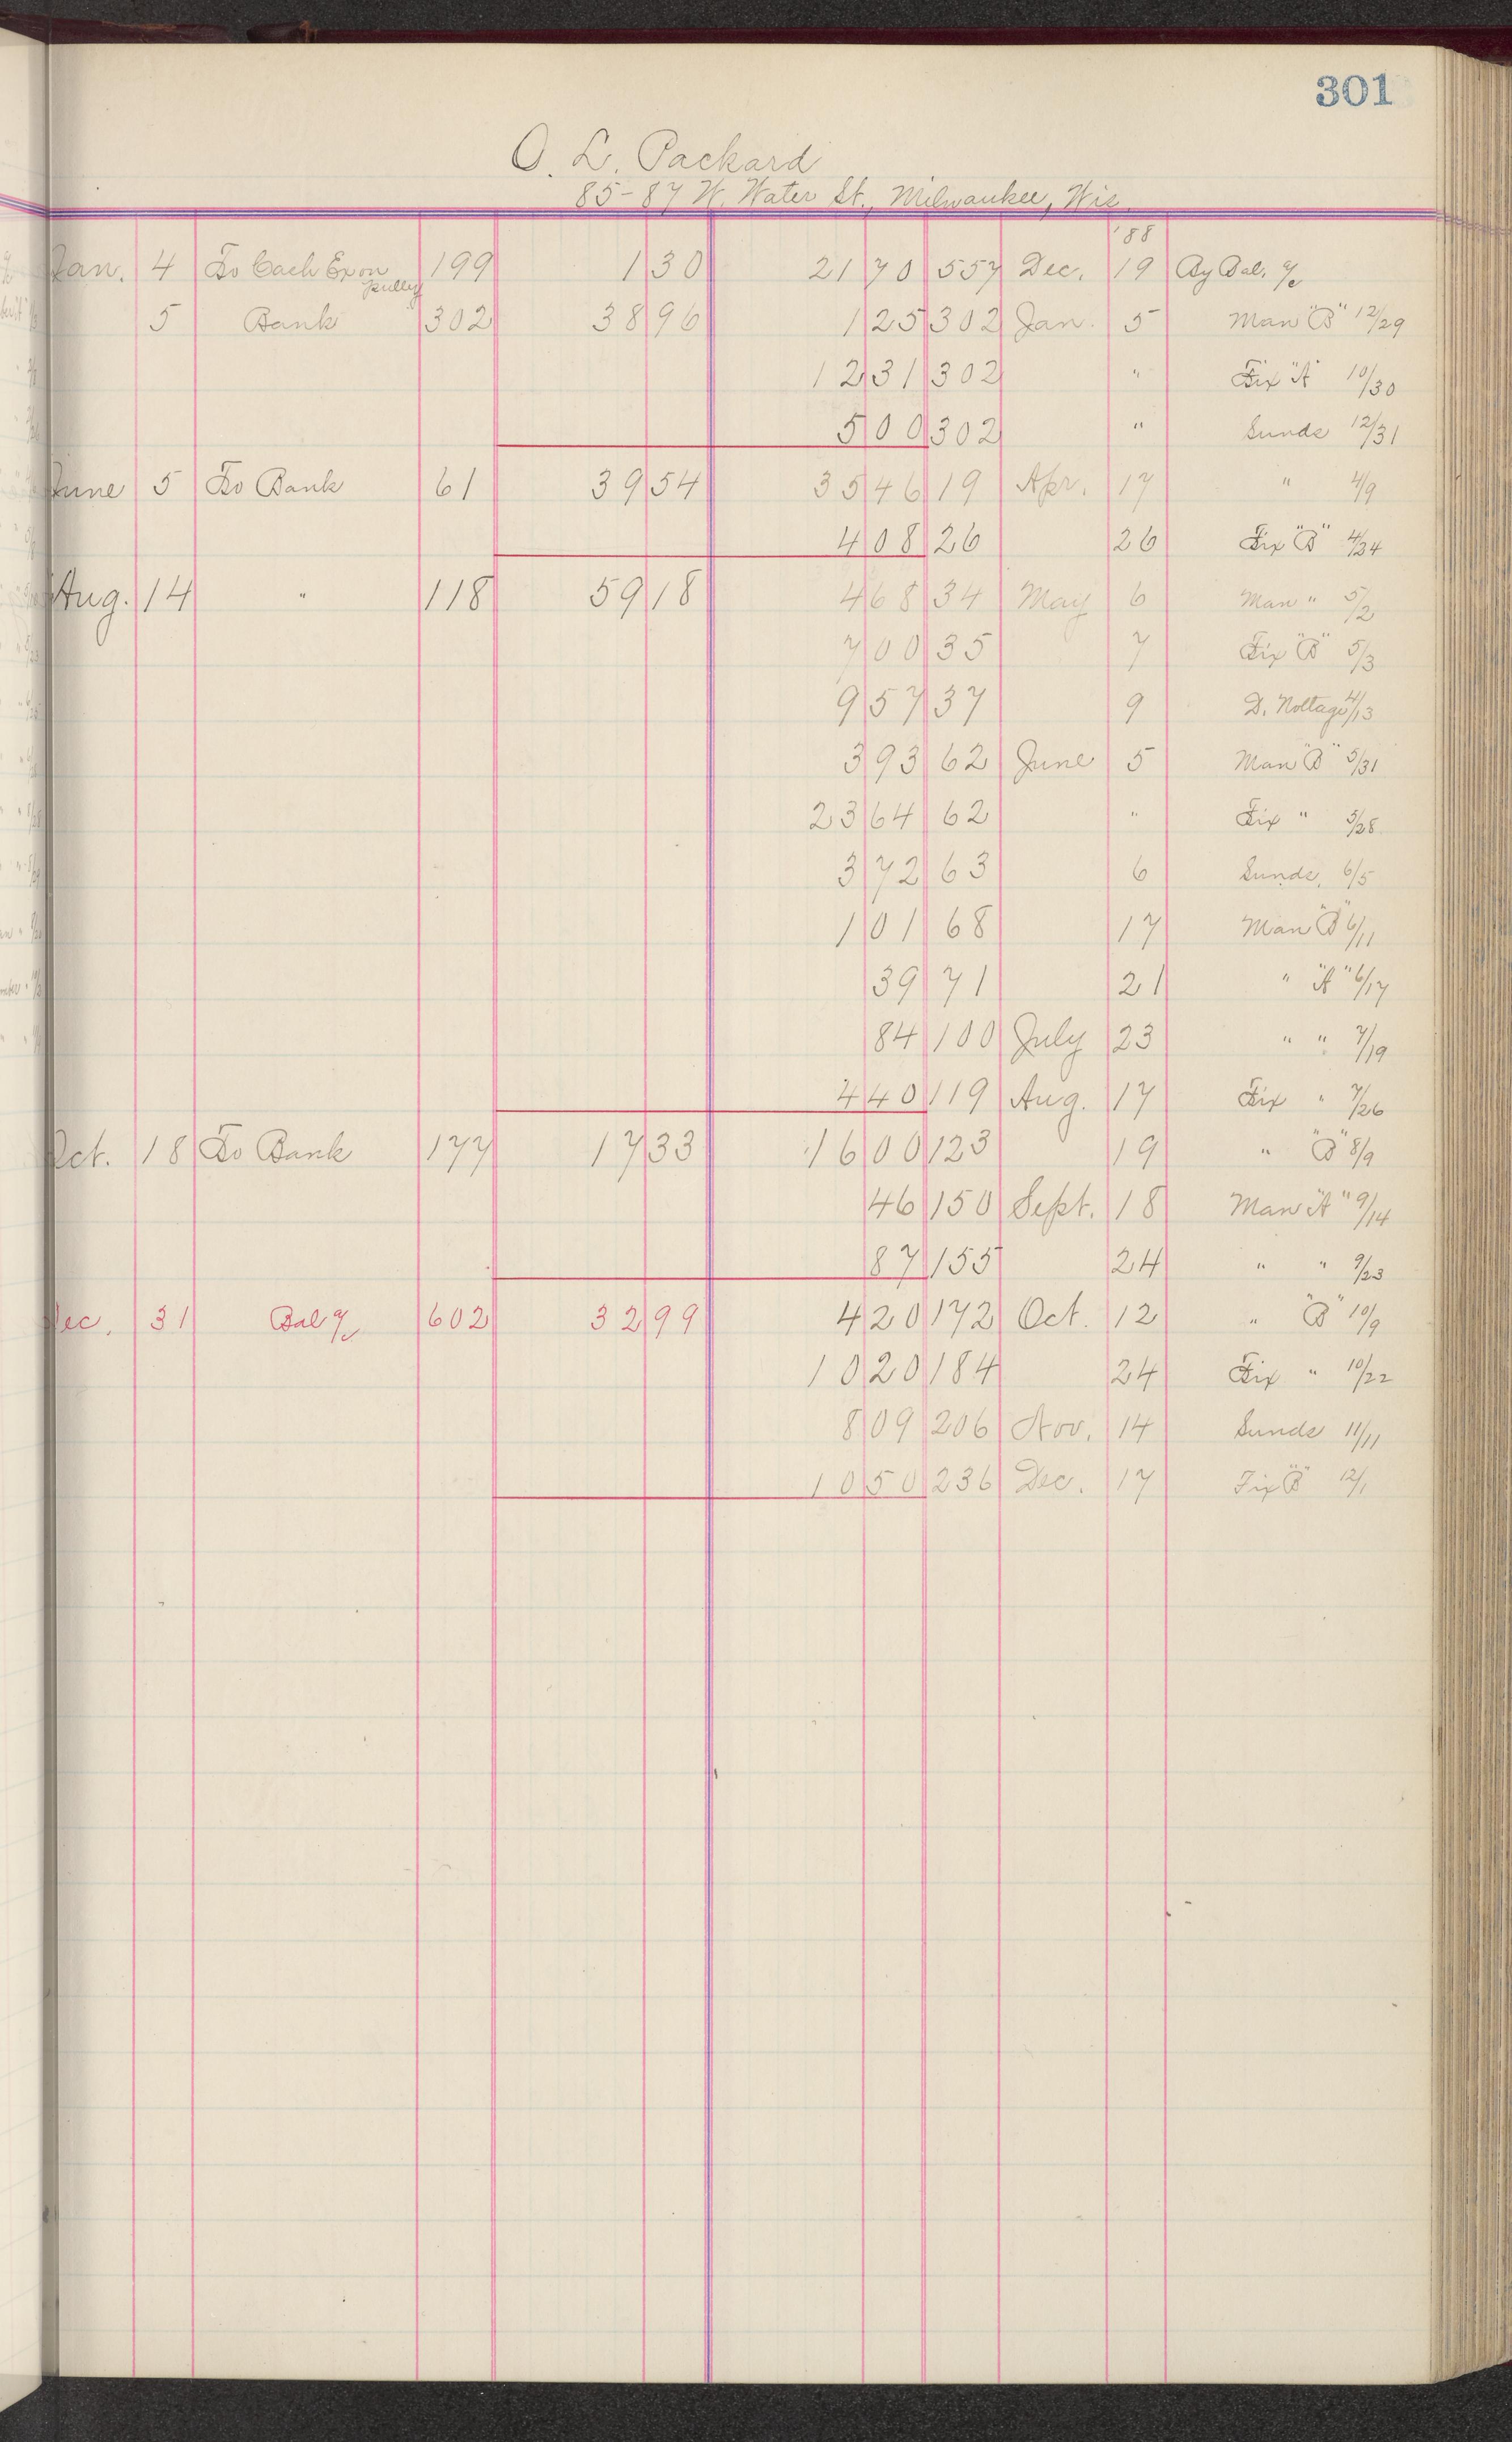 301
O. L. Packard
85-87 W. Water St., Milwaukee, Wis.
'88
Jan. 4 To Cash Ex on pulley 199 1 30 21 70 557 Dec. 19 By Bal. a/c
5 Bank 302 38 96 1 25 302 Jan. 5 Man "B" 12/29
12 31 302 " Fix "A" 10/30
5 00 302 " Sunds 12/31
June 5 To Bank 61 39 54 35 46 19 Apr. 17 " 4/9
4 08 26 26 Fix "B" 4/24
Aug. 14 " 118 59 18 4 68 34 May 6 Man " 5/2
7 00 35 7 Fix "B" 5/3
9 57 37 9 D. Nottage 4/13
3 93 62 June 5 Man "B" 5/31
23 64 62 " Fix " 5/28
3 72 63 6 Sunds. 6/5
1 01 68 17 Man "B" 6/11
39 71 21 " "A" 6/17
84 100 July 23 " " 7/19
4 40 119 Aug. 17 Fix " 7/26
Oct. 18 To Bank 177 17 33 16 00 123 19 " "B" 8/9
46 150 Sept. 18 Man "A" 9/14
87 155 24 " " 9/23
Dec. 31 Bal a/c 602 32 99 4 20 172 Oct. 12 " "B" 10/9
10 20 184 24 Fix " 10/22
8 09 206 Nov. 14 Sunds 11/11
10 50 236 Dec. 17 Fix "B" 12/1